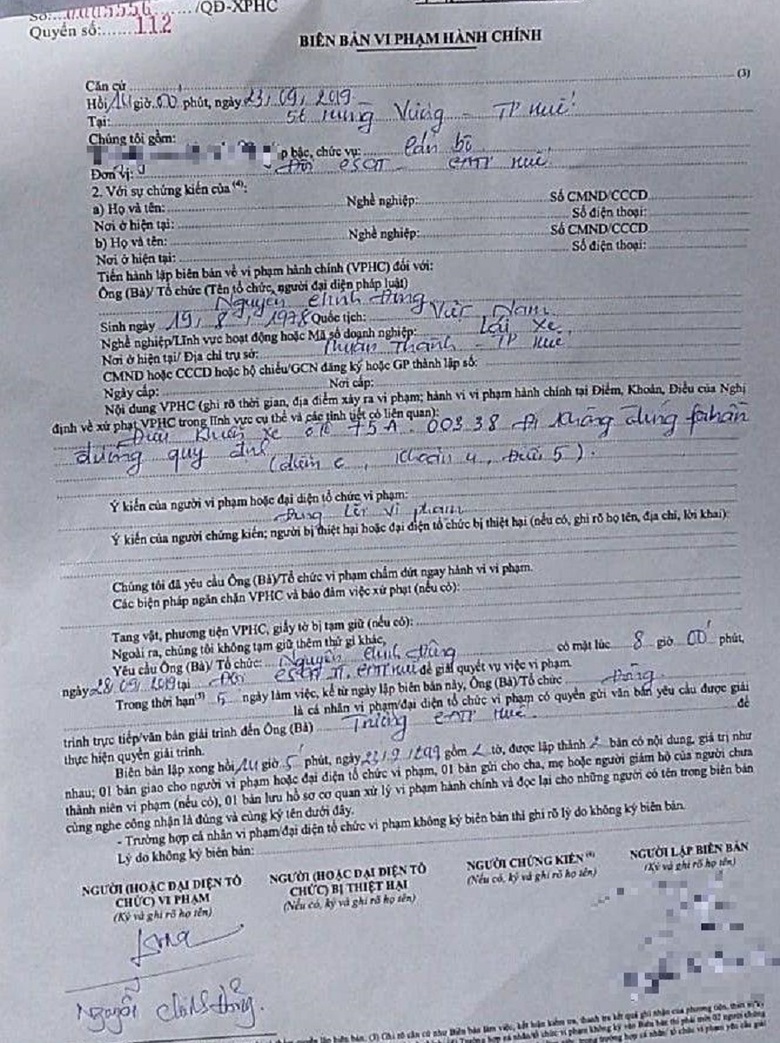 Số:...0005556...../QĐ-XPHC
Quyển số:......112
BIÊN BẢN VI PHẠM HÀNH CHÍNH
Căn cứ (3)
Hồi 14 giờ 00 phút, ngày 23/09/2019
Tại: Hùng Vương - TP Huế
Chúng tôi gồm:
p bậc, chức vụ: Cán bộ
Đơn vị: Đội CSGT - CATP Huế
2. Với sự chứng kiến của (4):
a) Họ và tên: Nghề nghiệp: Số CMND/CCCD
Nơi ở hiện tại: Số điện thoại:
b) Họ và tên: Nghề nghiệp: Số CMND/CCCD
Nơi ở hiện tại: Số điện thoại:
Tiến hành lập biên bản về vi phạm hành chính (VPHC) đối với:
Ông (Bà)/ Tổ chức (Tên tổ chức, người đại diện pháp luật)
Nguyễn Chính Dũng
Sinh ngày 19/8/1978 Quốc tịch: Việt Nam
Nghề nghiệp/Lĩnh vực hoạt động hoặc Mã số doanh nghiệp: Lái xe
Nơi ở hiện tại/ Địa chỉ trụ sở: Thuận Thành - TP Huế
CMND hoặc CCCD hoặc hộ chiếu/GCN đăng ký hoặc GP thành lập số:
Ngày cấp: Nơi cấp:
Nội dung VPHC (ghi rõ thời gian, địa điểm xảy ra vi phạm; hành vi vi phạm hành chính tại Điểm, Khoản, Điều của Nghị
định về xử phạt VPHC trong lĩnh vực cụ thể và các tình tiết có liên quan):
Điều khiển xe ôtô 75A. 00338 đi không đúng phần
đường quy định (điểm c, khoản 4, Điều 5).
Ý kiến của người vi phạm hoặc đại diện tổ chức vi phạm:
Đúng lỗi vi phạm
Ý kiến của người chứng kiến; người bị thiệt hại hoặc đại diện tổ chức bị thiệt hại (nếu có, ghi rõ họ tên, địa chỉ, lời khai):
Chúng tôi đã yêu cầu Ông (Bà)/Tổ chức vi phạm chấm dứt ngay hành vi vi phạm.
Các biện pháp ngăn chặn VPHC và bảo đảm việc xử phạt (nếu có):
Tang vật, phương tiện VPHC, giấy tờ bị tạm giữ (nếu có):
Ngoài ra, chúng tôi không tạm giữ thêm thứ gì khác,
Yêu cầu Ông (Bà)/ Tổ chức: Nguyễn Chính Dũng có mặt lúc 8 giờ 00 phút,
ngày 28/09/2019 tại Đội CSGT TT. CATP Huế để giải quyết vụ việc vi phạm.
Trong thời hạn (5) 5 ngày làm việc, kể từ ngày lập biên bản này, Ông (Bà)/Tổ chức Dũng
là cá nhân vi phạm/đại diện tổ chức vi phạm có quyền gửi văn bản yêu cầu được giải
trình trực tiếp/văn bản giải trình đến Ông (Bà) Trưởng CATP Huế để
thực hiện quyền giải trình.
Biên bản lập xong hồi 14 giờ 5 phút, ngày 23/9/2019 gồm 2 tờ, được lập thành 2 bản có nội dung, giá trị như
nhau; 01 bản giao cho người vi phạm hoặc đại diện tổ chức vi phạm, 01 bản gửi cho cha, mẹ hoặc người giám hộ của người chưa
thành niên vi phạm (nếu có), 01 bản lưu hồ sơ cơ quan xử lý vi phạm hành chính và đọc lại cho những người có tên trong biên bản
cùng nghe công nhận là đúng và cùng ký tên dưới đây.
- Trường hợp cá nhân vi phạm/đại diện tổ chức vi phạm không ký biên bản thì ghi rõ lý do không ký biên bản.
Lý do không ký biên bản:
NGƯỜI (HOẶC ĐẠI DIỆN TỔ
CHỨC) VI PHẠM
(Ký và ghi rõ họ tên)
NGƯỜI (HOẶC ĐẠI DIỆN TỔ
CHỨC) BỊ THIỆT HẠI
(Nếu có, ký và ghi rõ họ tên)
NGƯỜI CHỨNG KIẾN (6)
(Nếu có, ký và ghi rõ họ tên)
NGƯỜI LẬP BIÊN BẢN
(Ký và ghi rõ họ tên)